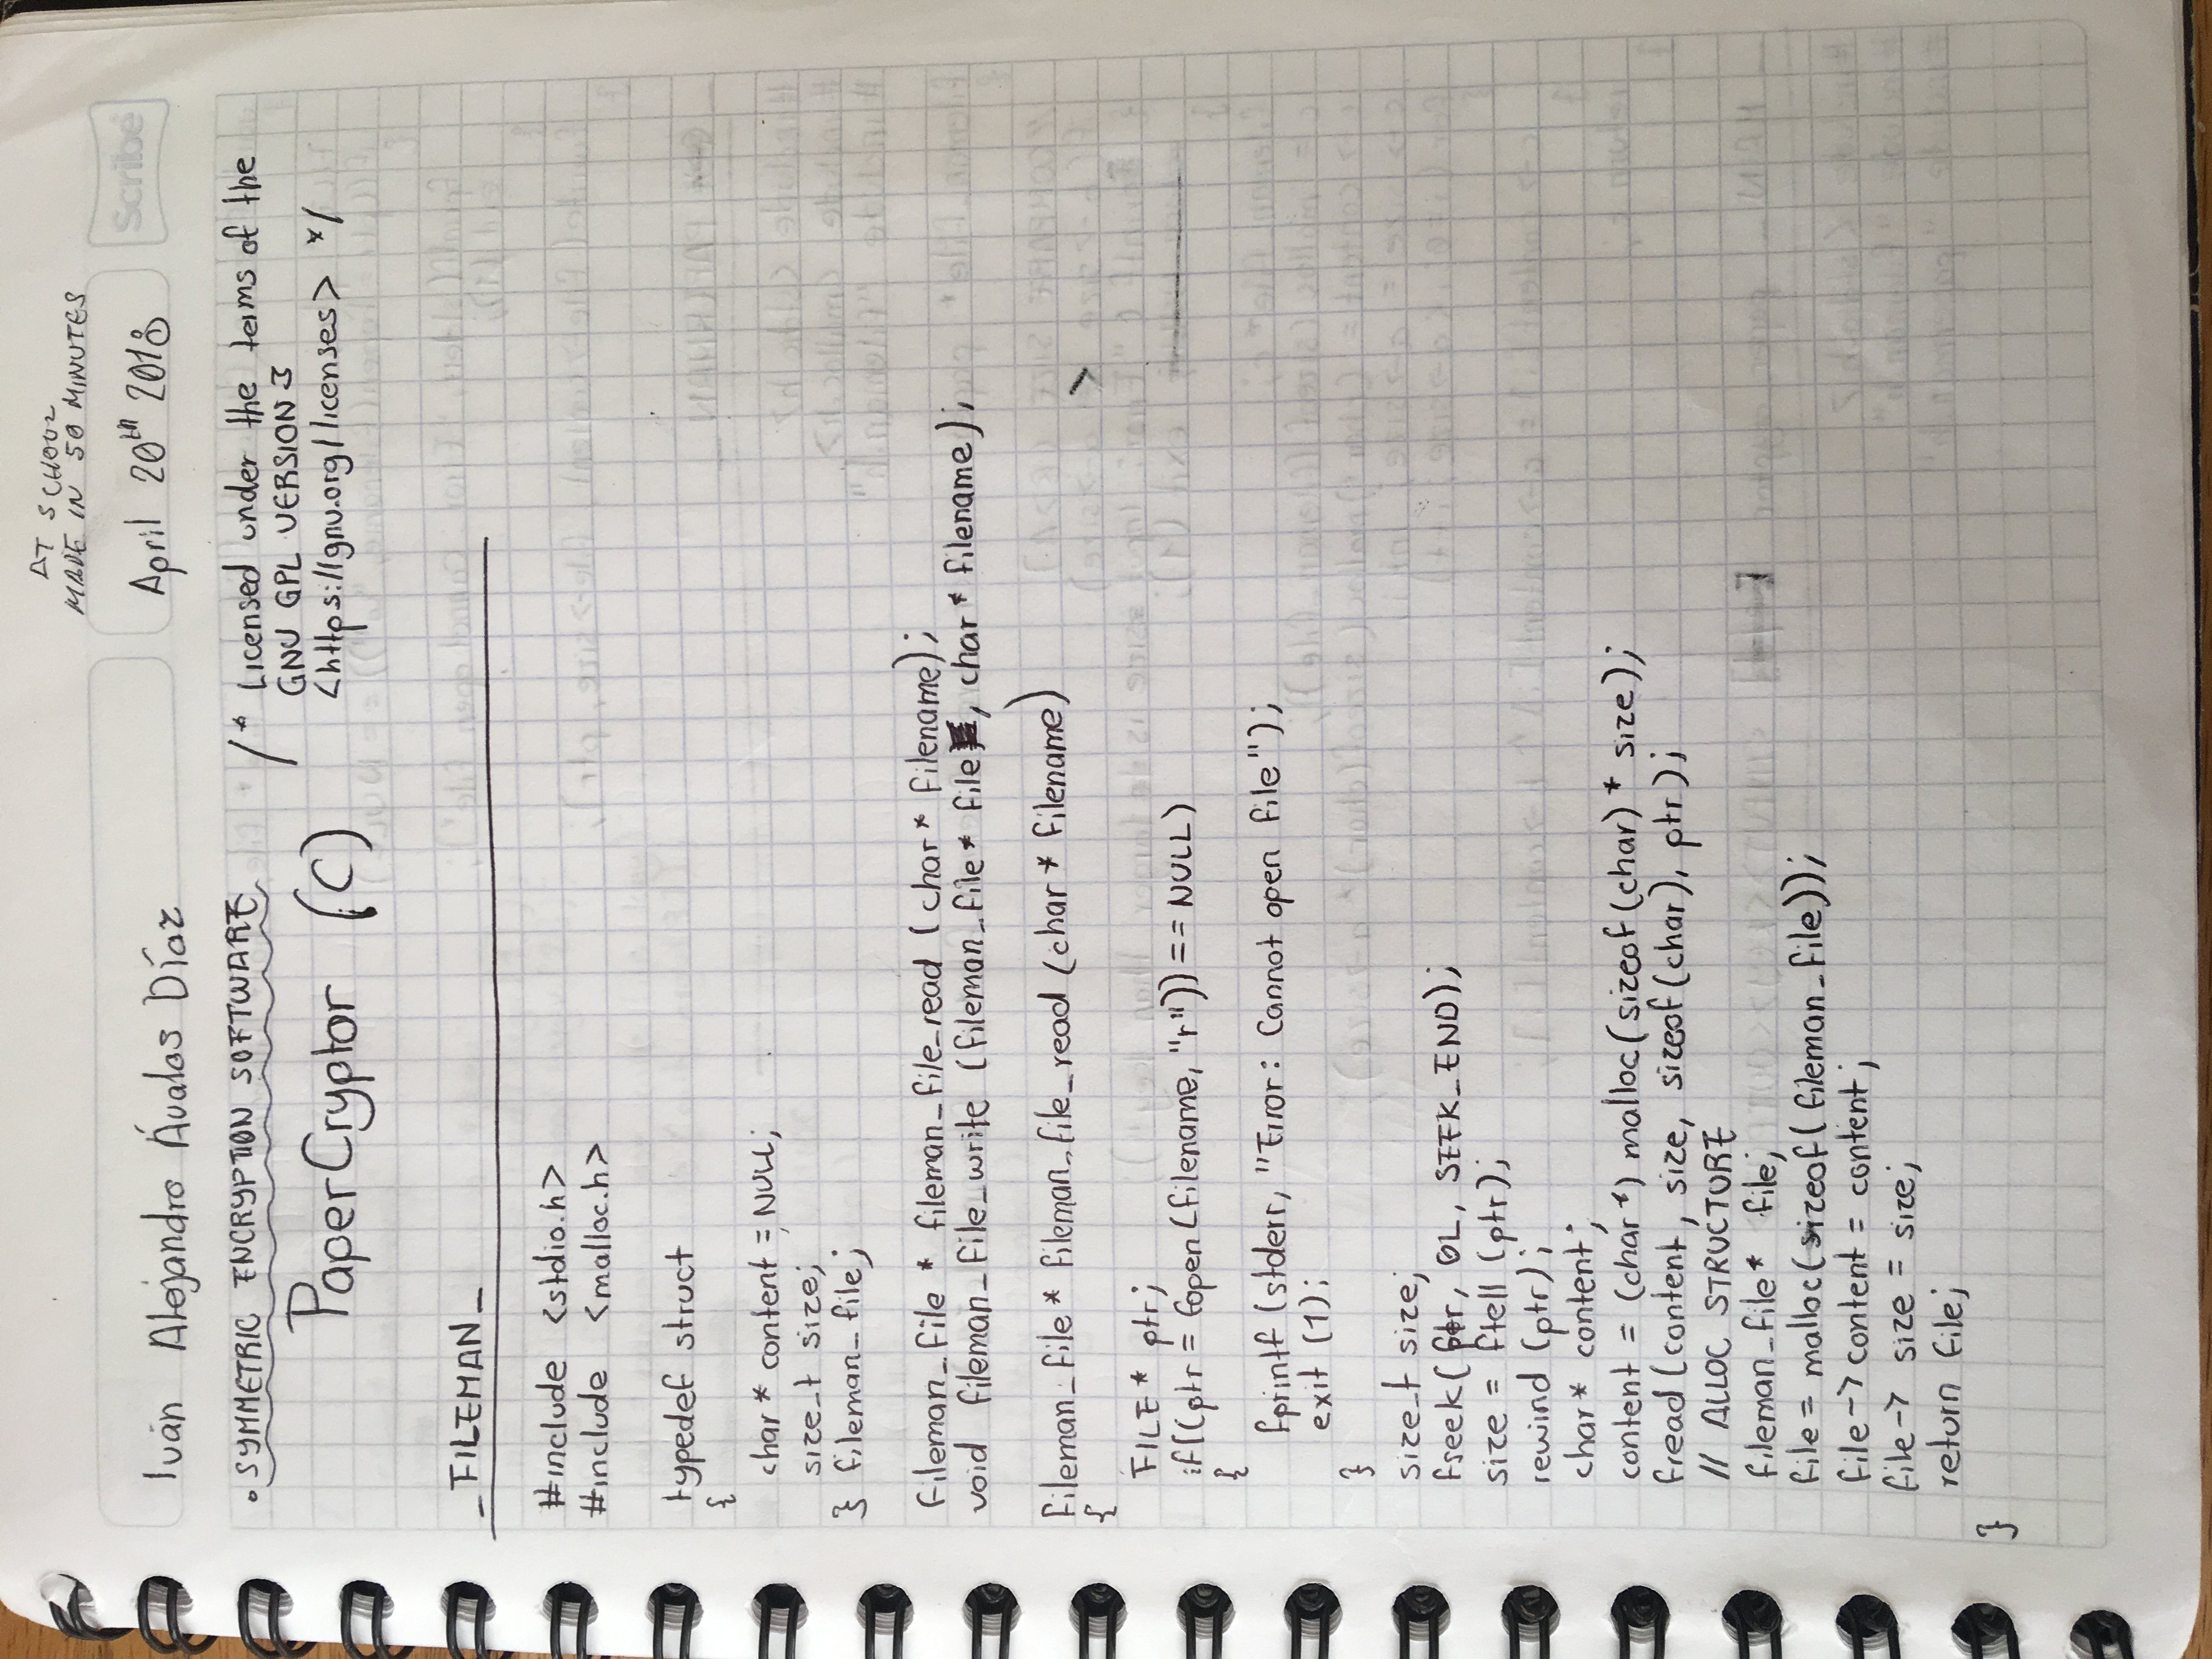 AT SCHOOL
MADE IN 50 MINUTES
Scribe
Iván Alejandro Ávalos Díaz
April 20th 2018
• SYMMETRIC ENCRYPTION SOFTWARE
PaperCryptor (C)
/* Licensed under the terms of the
GNU GPL VERSION 3
<https://gnu.org/licenses> */
_FILEMAN_
#include <stdio.h>
#include <malloc.h>
typedef struct
{
char* content = NULL;
size_t size;
} fileman_file;
fileman_file * fileman_file_read (char* filename);
void fileman_file_write (fileman_file* file, char* filename);
fileman_file* fileman_file_read (char* filename)
{
FILE* ptr;
if((ptr = fopen(filename, "r")) == NULL)
{
fprintf (stderr, "Error: Cannot open file");
exit (1);
}
size_t size;
fseek(ptr, 0L, SEEK_END);
size = ftell (ptr);
rewind (ptr);
char* content;
content = (char*) malloc(sizeof(char) * size);
fread (content, size, sizeof(char), ptr);
// ALLOC STRUCTURE
fileman_file* file;
file = malloc(sizeof(fileman_file));
file-> content = content;
file-> size = size;
return file;
}